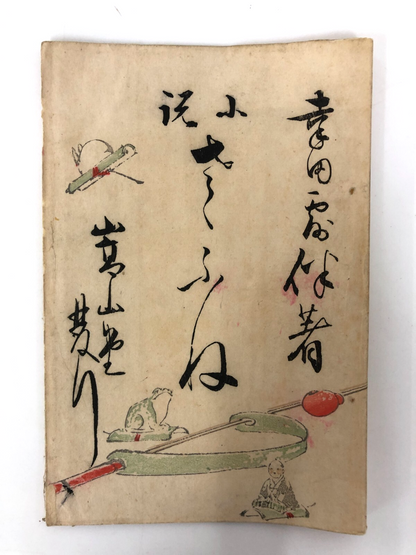 幸田露伴著
小説
さゝふね
嵩山堂發行